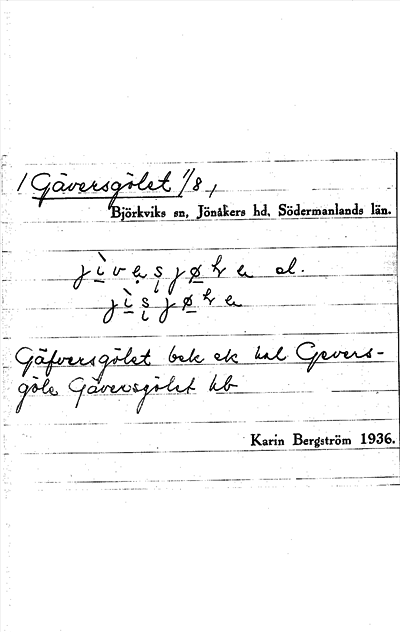 1 Gäversgölet 1/8,
Björkviks sn, Jönåkers hd, Södermanlands län.
el.
Gäfversgölet bek ek hal Gevers-
göle Gäversgölet hb
Karin Bergström 1936.